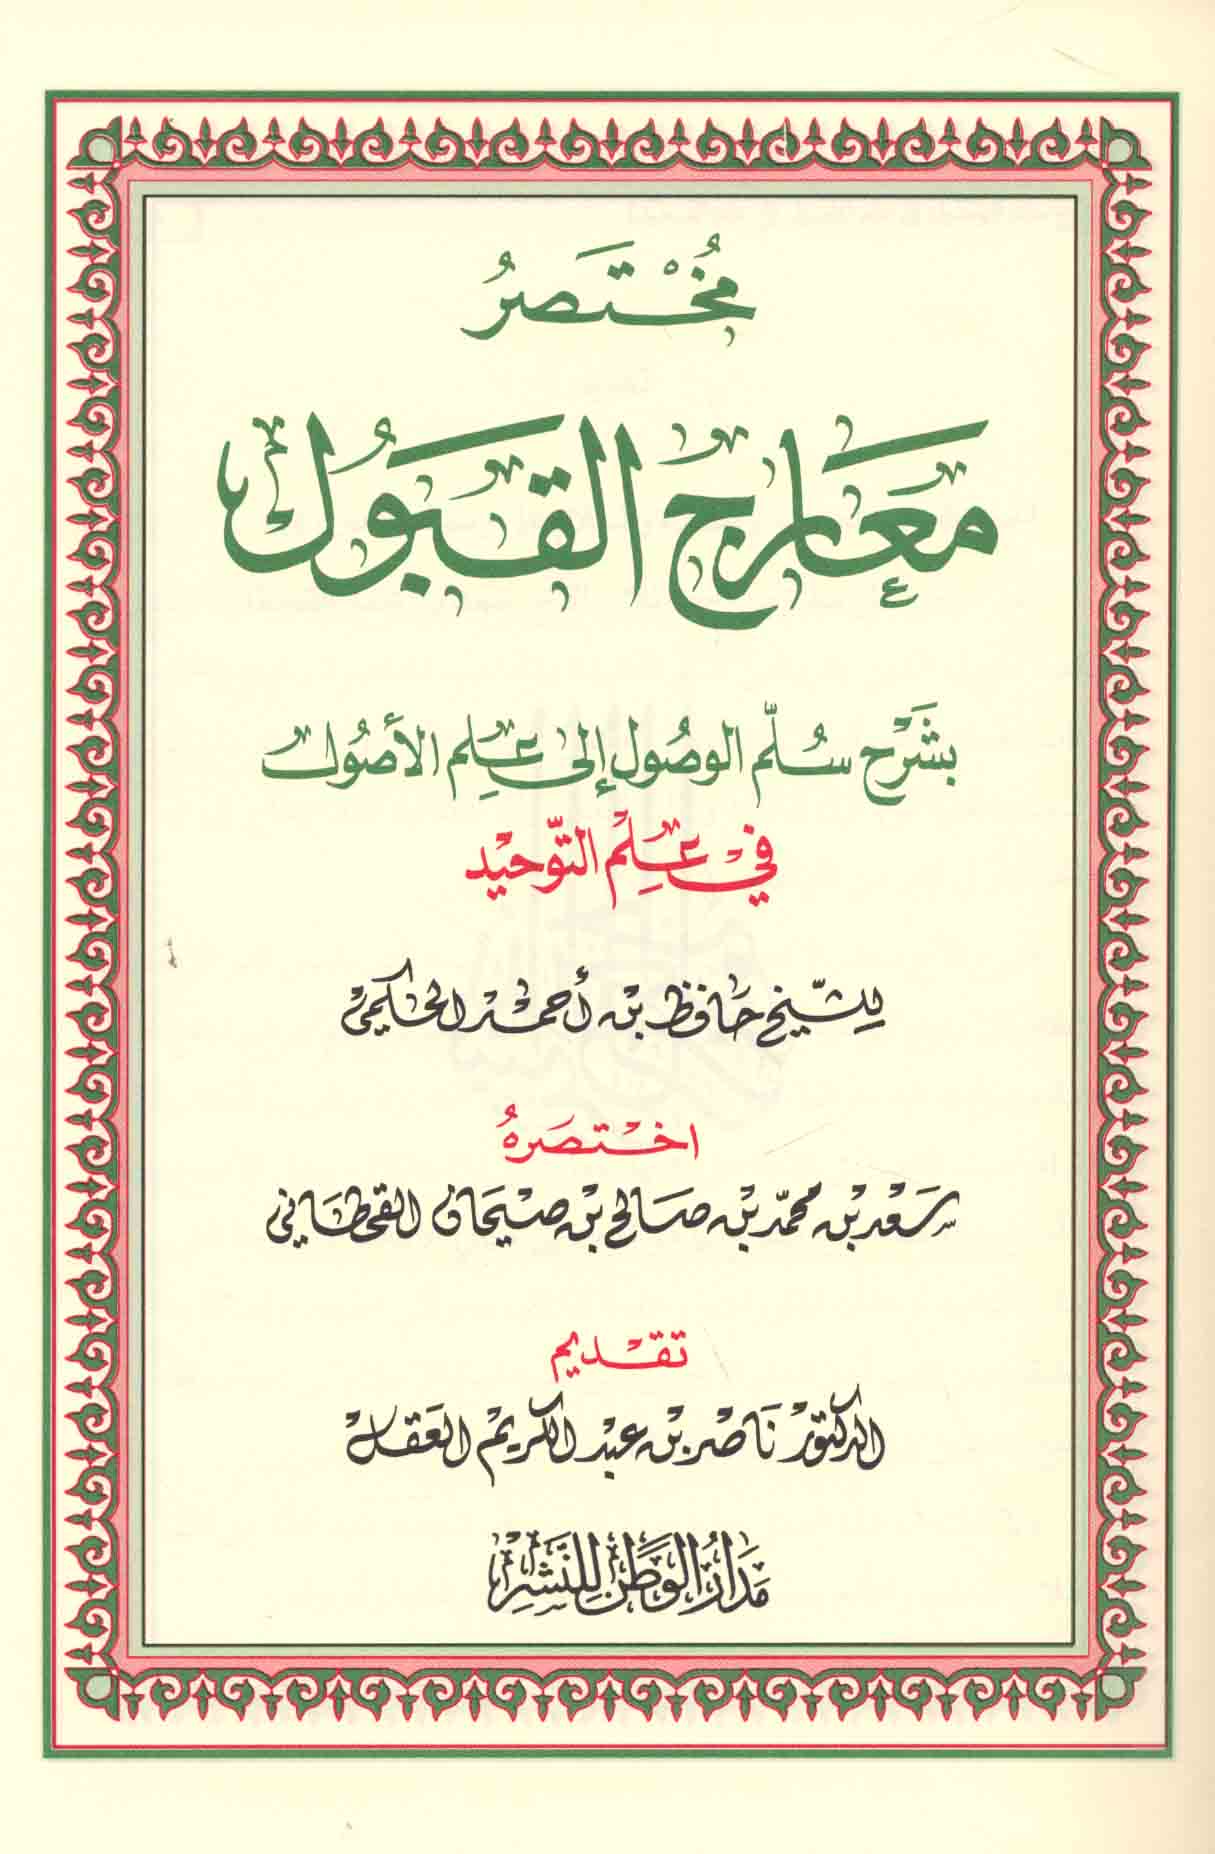 مُخْتَصَرُ
مَعَارِج القَبُول
بشَرْح سُلَّم الوصُول إلى عِلم الأصُول
في عِلْم التَّوحيد
لِلشَّيخ حَافظ بن أحمد الحكمي
اختصَرهُ
سَعْد بن محمّد بن صَالح بن صيحان القحطَاني
تقديم
الدكتور نَاصر بن عبد الكريم العَقل
مَدَارُ الوَطَن لِلنَّشر